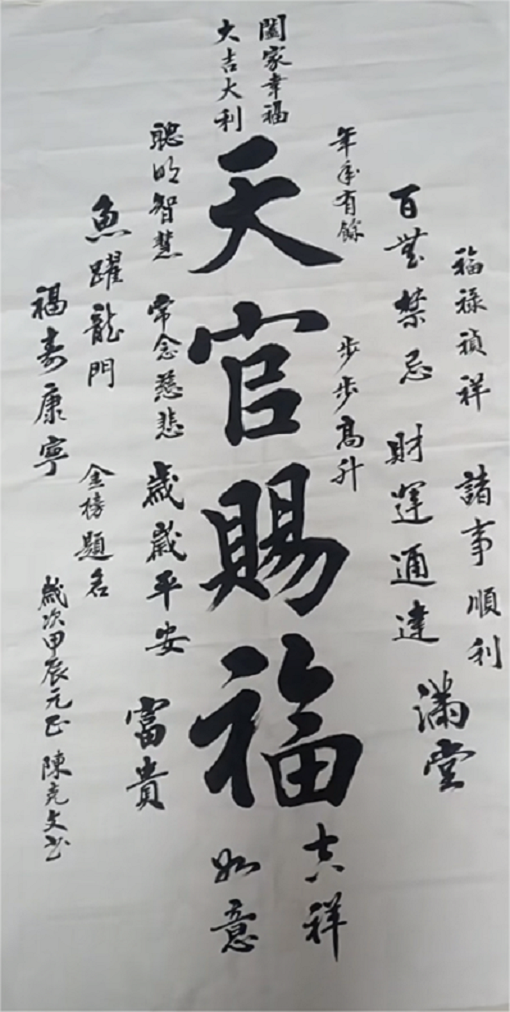 福禄禎祥 諸事順利
百無禁忌 財運通達 滿堂
年年有餘 步步高升
闔家幸福
大吉大利
天官賜福
吉祥
如意
聰明智慧 常念慈悲 歲歲平安 富貴
魚躍龍門 金榜題名
福寿康寧
歲次甲辰元正 陳克文书